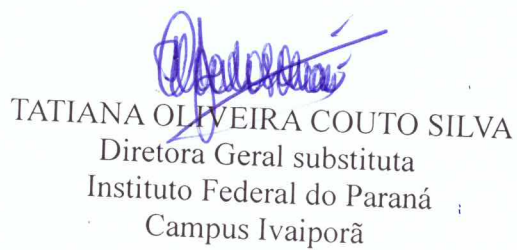 TATIANA OLIVEIRA COUTO SILVA
Diretora Geral substituta
Instituto Federal do Paraná
Campus Ivaiporã